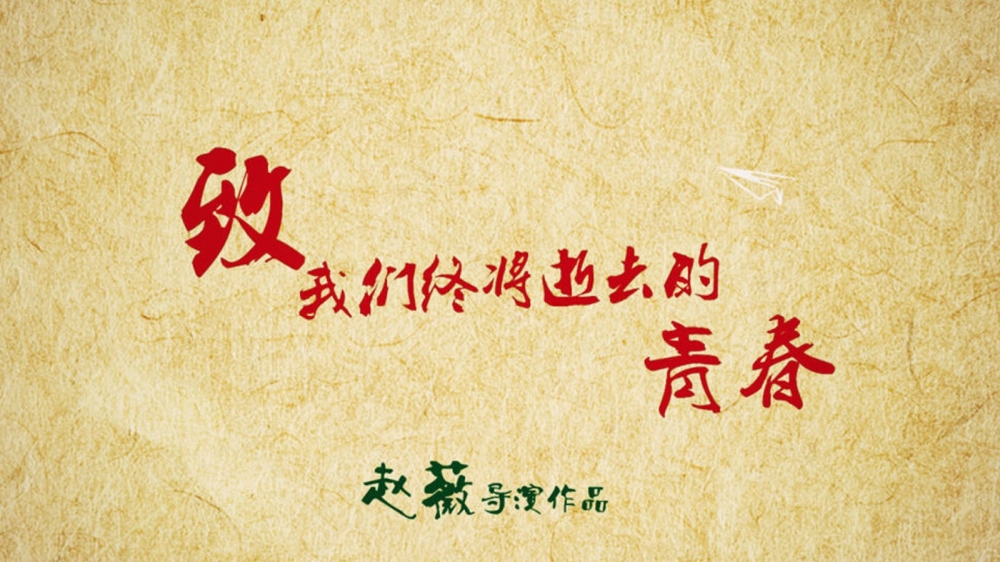 致
我们终将逝去的
青春
赵薇导演作品